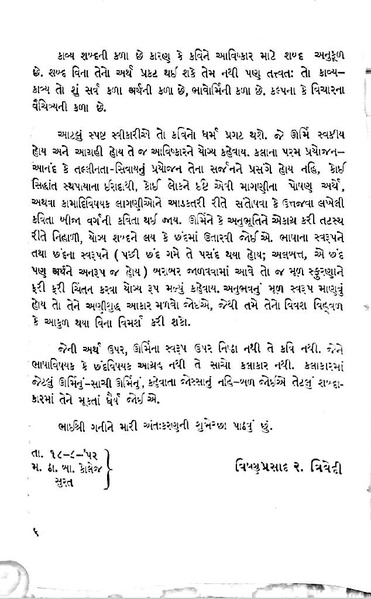 કાવ્ય શબ્દની કળા છે કારણ કે કવિને આવિષ્કાર માટે શબ્દ અનુકૂળ
છે. શબ્દ વિના તેનો અર્થ પ્રકટ થઈ શકે તેમ નથી પણ તત્ત્વતઃ તો કાવ્ય–
કાવ્ય તો શું સર્વ કળા અર્થની કળા છે, ભાવોર્મિની કળા છે. કલ્પના કે વિચારના
વૈચિત્ર્યની કળા છે.
આટલું સ્પષ્ટ સ્વીકારીએ તો કવિનો ધર્મ પ્રગટ થશે. જો ઊર્મિ સ્વકીય
હોય અને આગ્રહી હોય તે જ આવિષ્કારને યોગ્ય કહેવાય. કલાના પરમ પ્રયોજન–
આનંદ કે તલ્લીનતા–સિવાયનું પ્રયોજન તેના સર્જનને પ્રસંગે હોય નહિ, કોઈ
સિદ્ધાંત સ્થપાયાના ઈરાદાથી, કોઈ લોકને ઈષ્ટ એવી માગણીના પોષણ અર્થે,
અથવા કામાદિવિષયક લાગણીઓને આડકતરી રીતે સતોષવા કે ઉત્તજવા લખેલી
કવિતા બીજા વર્ગની કવિતા થઈ જાય. ઊર્મિને કે અનુભૂતિને એકાગ્ર કરી તટસ્થ
રીતે નિહાળી, યોગ્ય શબ્દને લય કે છંદમાં ઉતારવી જોઈએ. ભાષાના સ્વરૂપને
તથા છંદના સ્વરૂપને ( પછી છંદ ગમે તે પસંદ થયા હોય; અલબત્ત, એ છંદ
પણ અર્થને અનરૂપ જ હોય ) બરાબર જાળવવામાં આવે તો જ મૂળ સ્ફુરણાને
ફરી ફરી ચિંતન કરવા યોગ્ય રૂપ મળ્યું કહેવાય. અનુભવનું મૂળ સ્વરૂપ માણવું
હોય તો તેને અણીશુદ્ધ આકાર મળવો જોઇએ, જેથી તમે તેનો વિવશ વિહ્વળ
કે આકુળ થયા વિના વિમર્શ કરી શકો.
જેની અર્થ ઉપર, ઊર્મિના સ્વરૂપ ઉપર નિષ્ઠા નથી તે કવિ નથી. જેને
ભાષાવિષયક કે છંદવિષયક આગ્રહ નથી તે સાચો કલાકાર નથી. કલાકારમાં
જેટલું ઊર્મિનું–સાચી ઊર્મિનું, કહેવાતા જોસ્સાનું નહિ–બળ જોઈએ તેટલું શબ્દા-
કારમાં તેને મૂકતાં ધૈર્ય જોઈએ.
ભાઈશ્રી ગનીને મારી અંતઃકરણની શુભેચ્છા પાઠવું છું.
તા. ૧૮–૮–’૫૨
મ. ઠા. બા. કોલેજ
સુરત
વિષ્ણુપ્રસાદ ર. ત્રિવેદી
૬